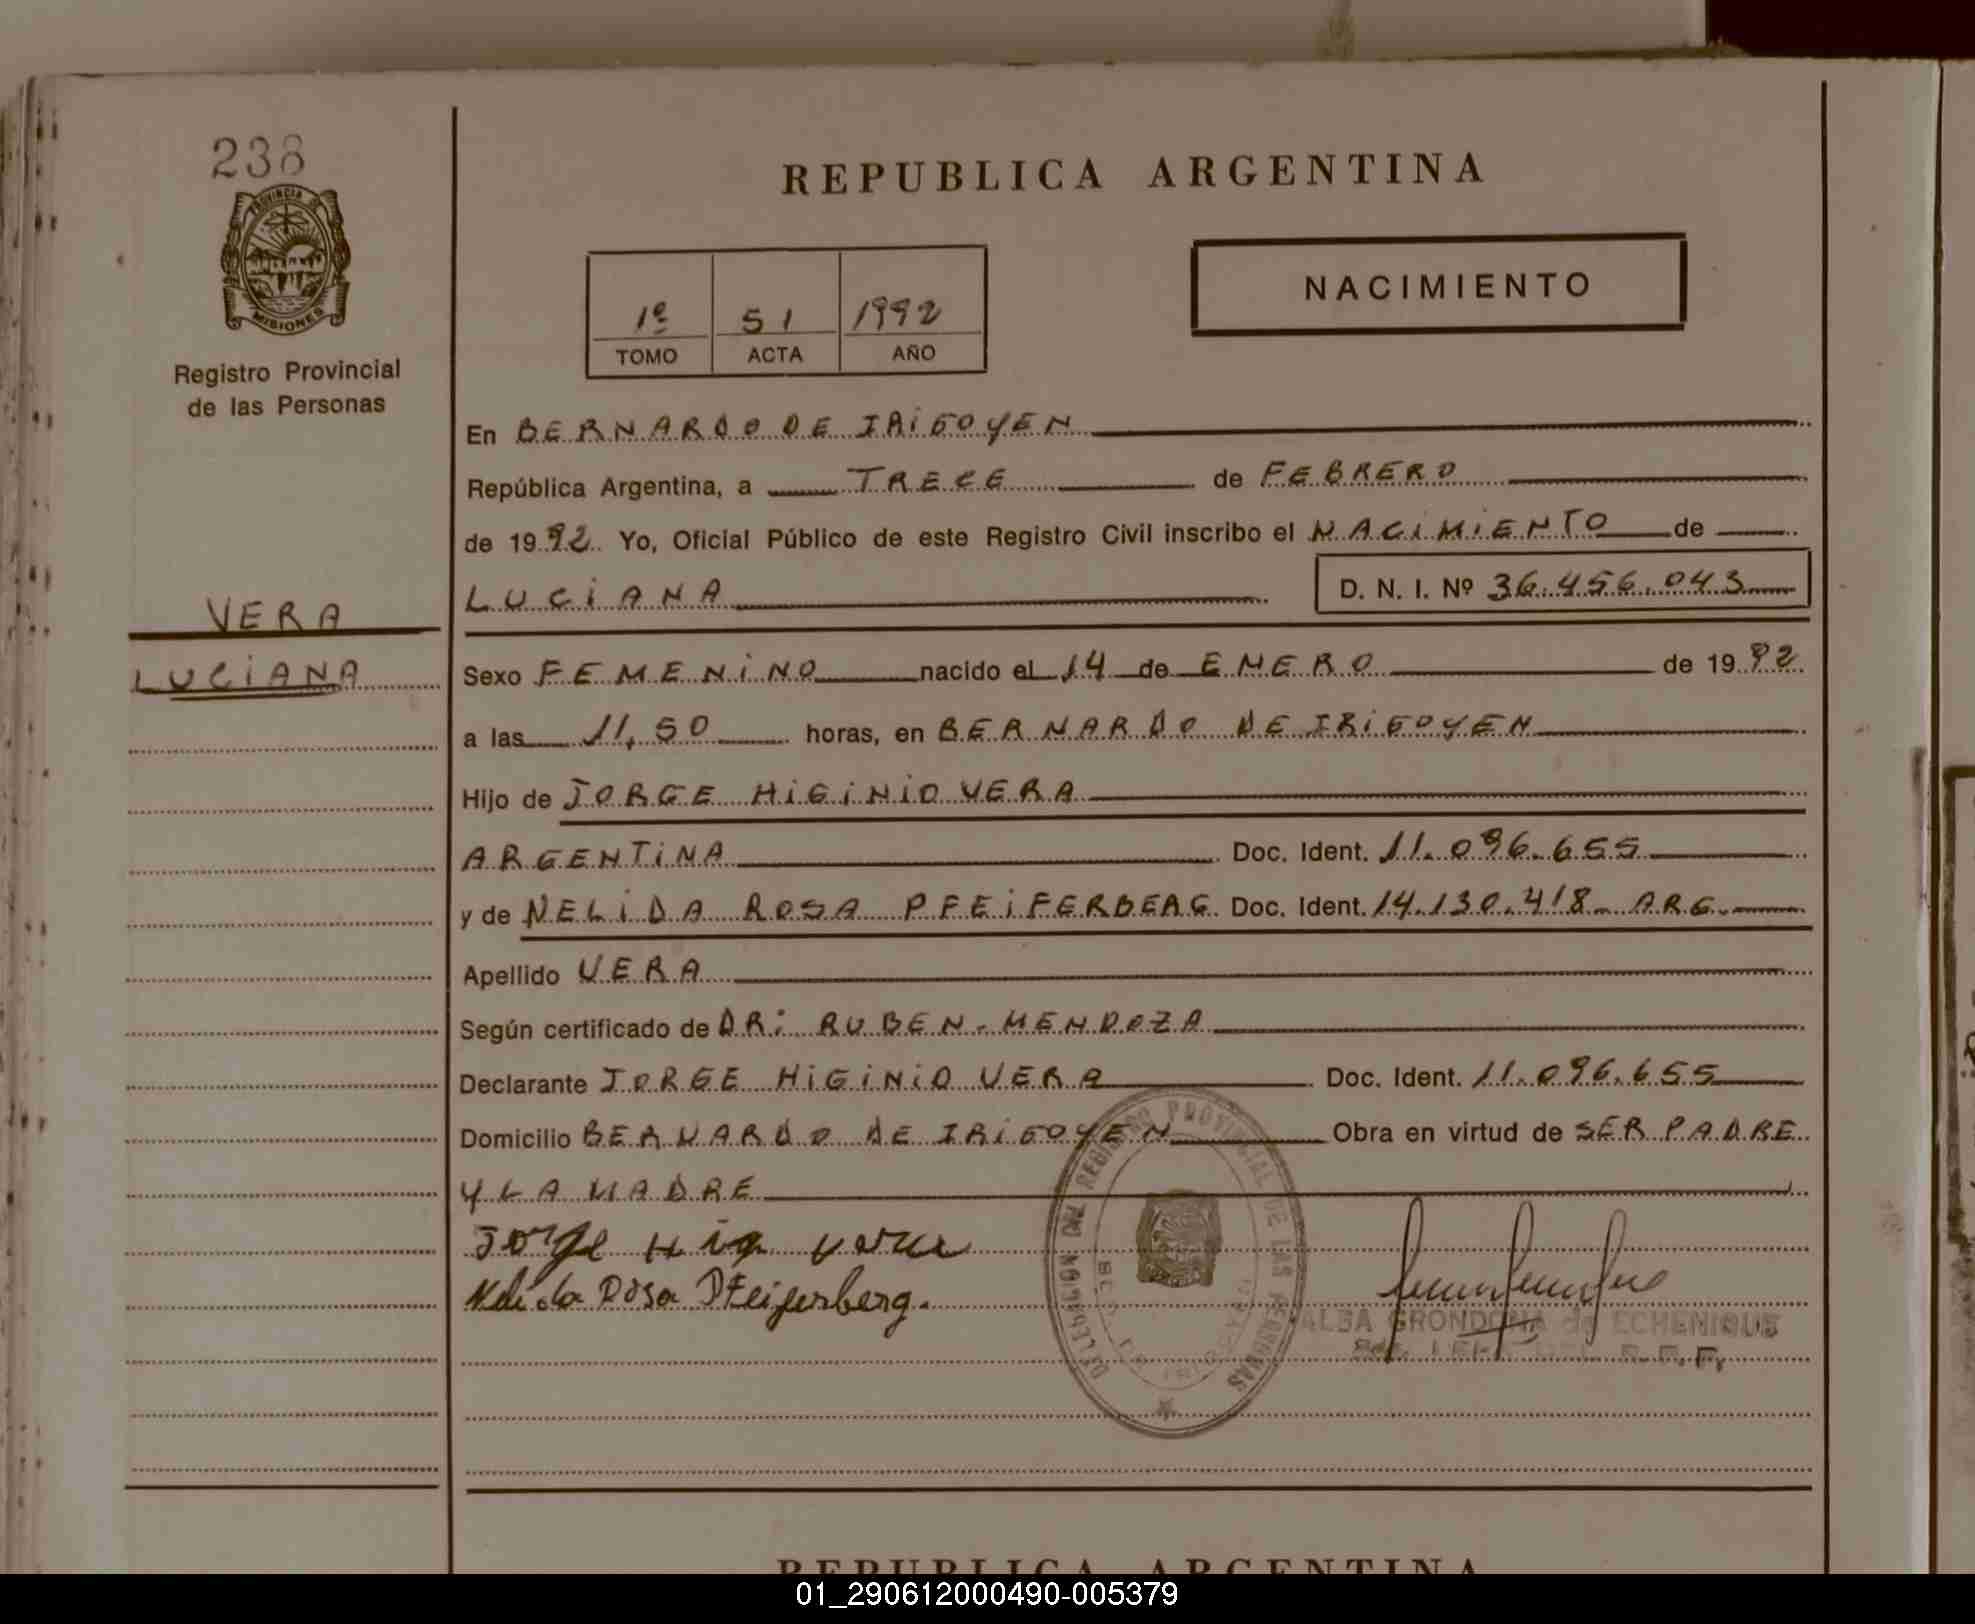 238
PROVINCIA DE
MISIONES
Registro Provincial
de las Personas
VERA
LUCIANA
REPUBLICA ARGENTINA
NACIMIENTO
1º 51 1992
TOMO ACTA AÑO
En BERNARDO DE IRIGOYEN
República Argentina, a TRECE de FEBRERO
de 1992 Yo, Oficial Público de este Registro Civil inscribo el NACIMIENTO de
LUCIANA D. N. I. Nº 36.456.043
Sexo FEMENINO nacido el 14 de ENERO de 1992
a las 11,50 horas, en BERNARDO DE IRIGOYEN
Hijo de JORGE HIGINIO VERA
ARGENTINA Doc. Ident. 11.096.655
y de NELIDA ROSA PFEIFERBERG Doc. Ident. 14.130.418 ARG.
Apellido VERA
Según certificado de DR: RUBEN. MENDOZA
Declarante JORGE HIGINIO VERA Doc. Ident. 11.096.655
Domicilio BERNARDO DE IRIGOYEN Obra en virtud de SER PADRE
Y LA MADRE
Jorge Hig Vera
Nelida Rosa Pfeiferberg.
DELEGACION DEL REGISTRO PROVINCIAL DE LAS PERSONAS
ALBA GRONDONA de ECHENIQUE
REPUBLICA ARGENTINA
01_290612000490-005379